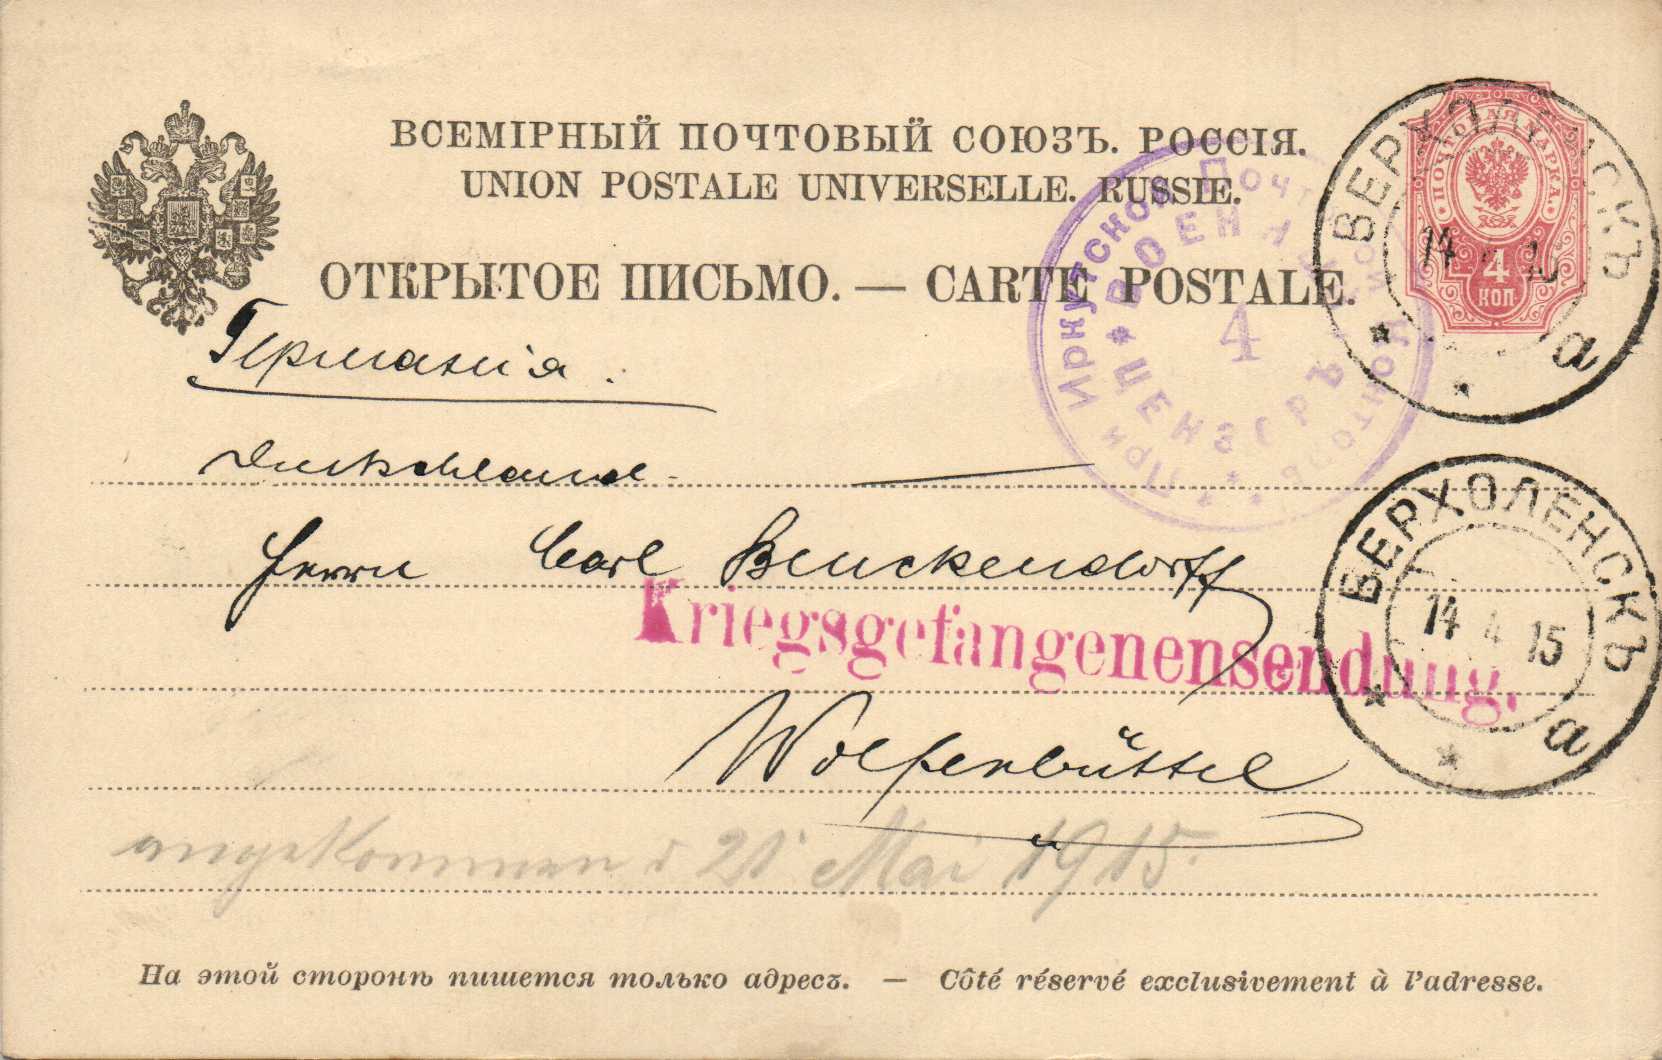 ВСЕМІРНЫЙ ПОЧТОВЫЙ СОЮЗЪ. РОССІЯ.
UNION POSTALE UNIVERSELLE. RUSSIE.
ОТКРЫТОЕ ПИСЬМО. — CARTE POSTALE.
ПОЧТОВАЯ МАРКА.
4
КОП
ВЕРХОЛЕНСКЪ
14 4 15
а
При Иркутской Почтовой Конторѣ
ВОЕННЫЙ
4
ЦЕНЗОРЪ
Германія.
Deutschland.
Herrn Carl Benckendorff
Kriegsgefangenensendung.
ВЕРХОЛЕНСКЪ
14 4 15
а
Wolfenbüttel
angekommen d 21. Mai 1915.
На этой сторонѣ пишется только адресъ. — Côté réservé exclusivement à l'adresse.